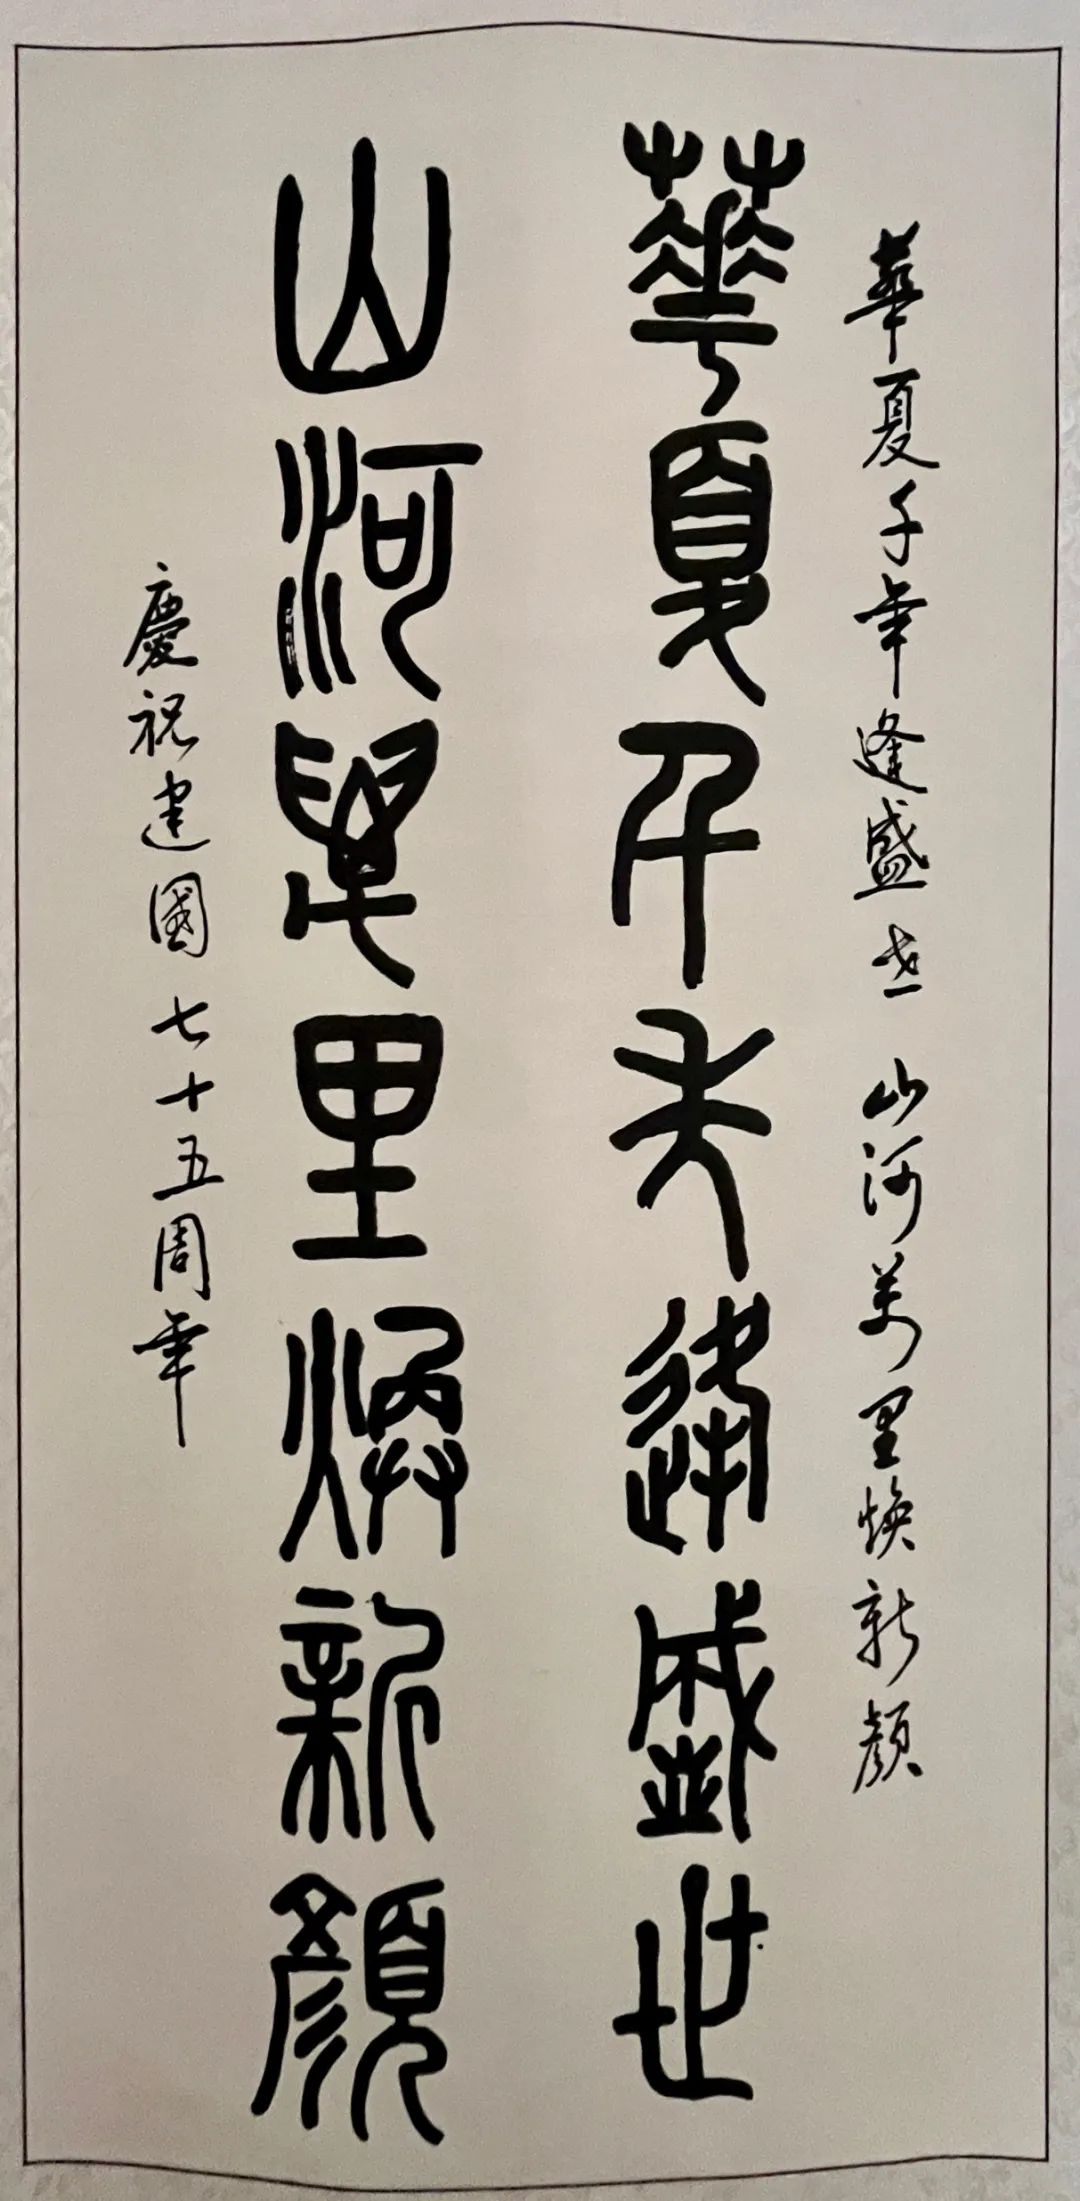 華夏千年逢盛世 山河萬里煥新顏
華夏千年逢盛世
山河萬里煥新顏
慶祝建國七十五周年